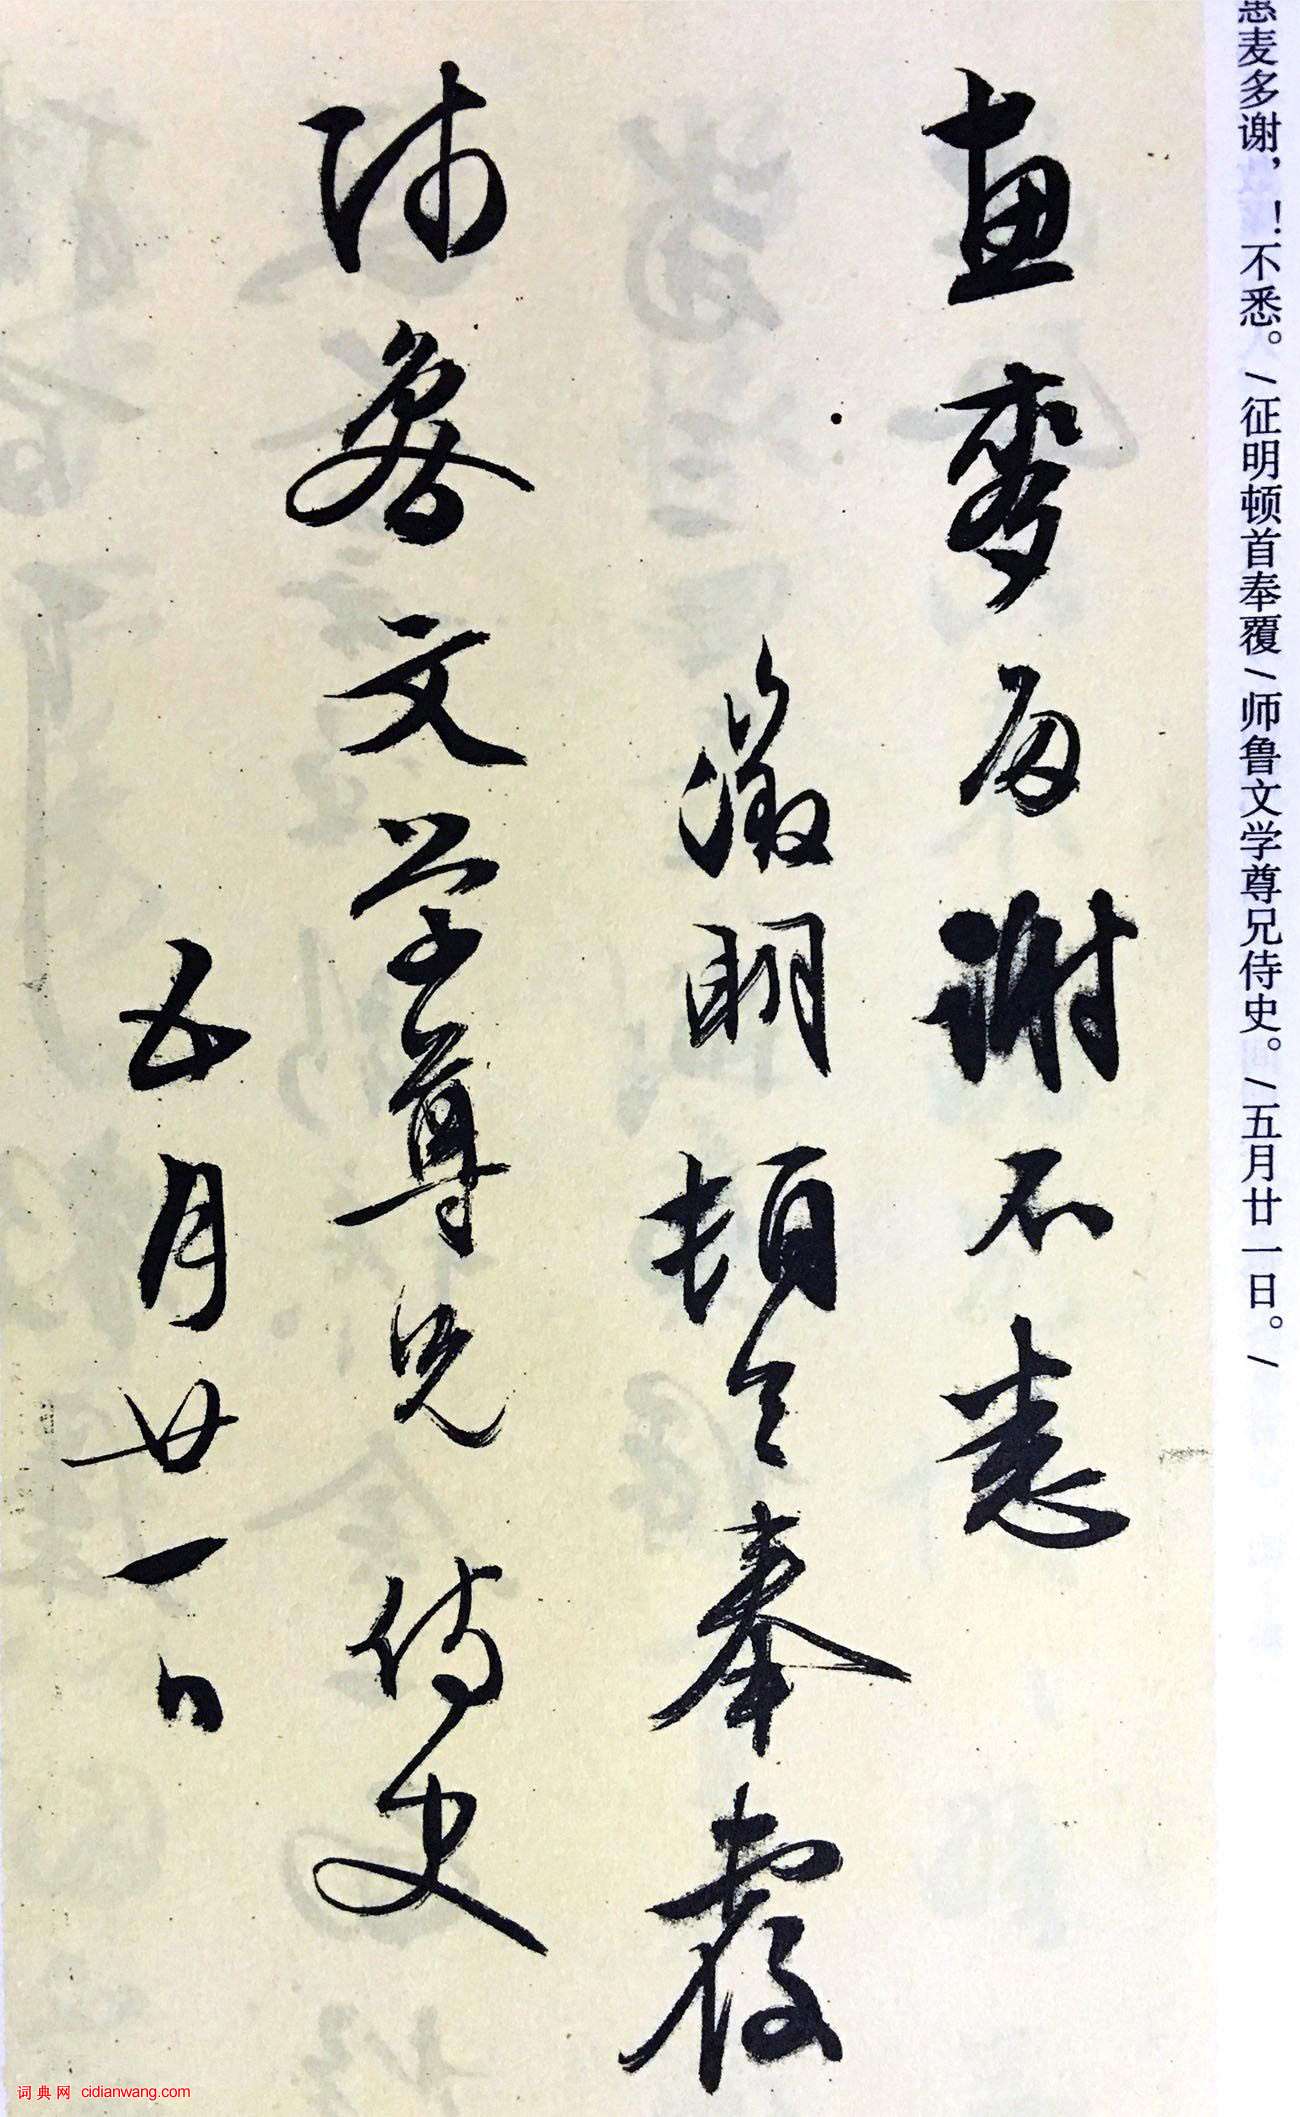 惠麦多谢，！不悉。/征明顿首奉覆/师鲁文学尊兄侍史。/五月廿一日。/
惠麥多謝不悉
徵明頓首奉覆
師魯文学尊兄侍史
五月廿一日
词典网 cidianwang.com